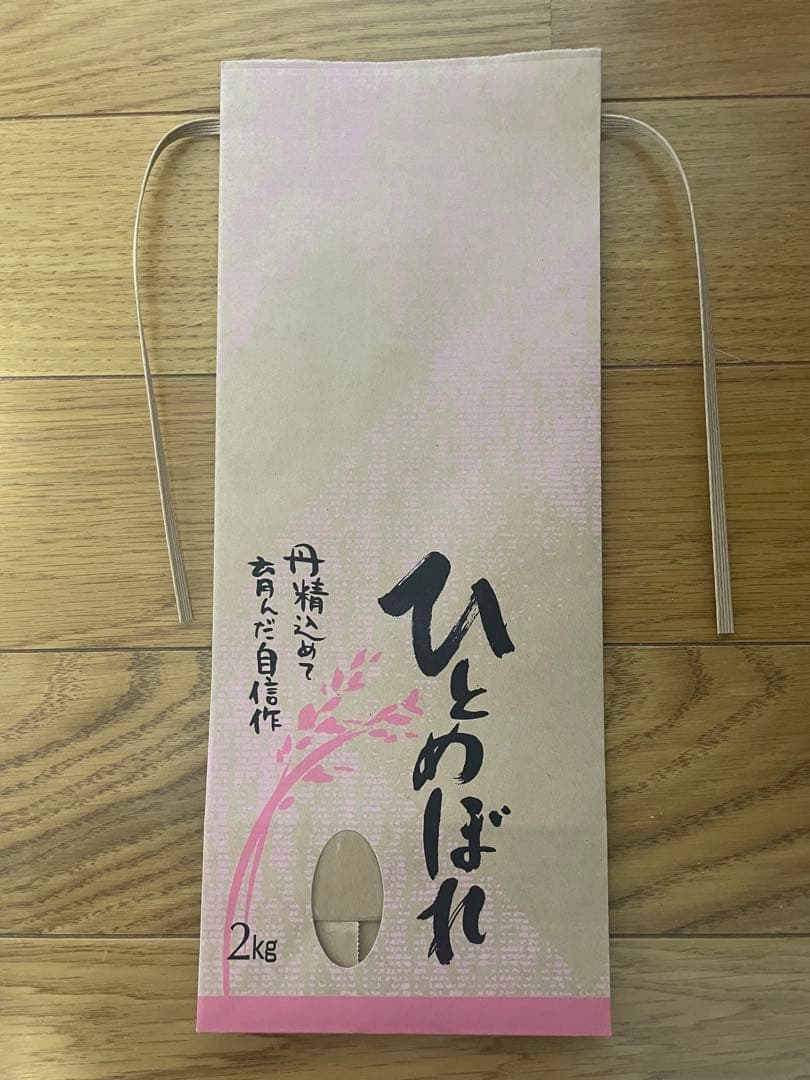 ひとめぼれ
丹精込めて
育んだ自信作
2kg